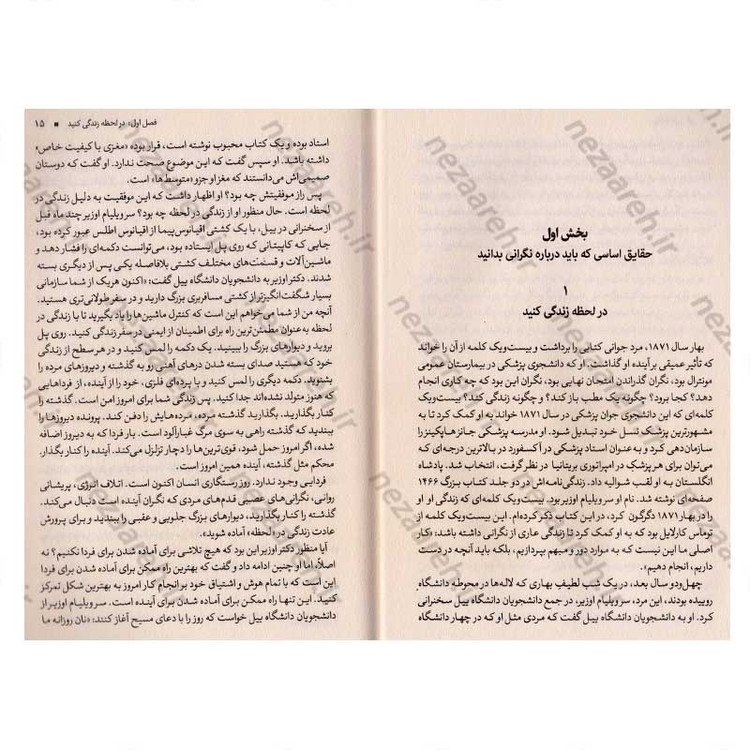 بخش اول
حقایق اساسی که باید درباره نگرانی بدانید
۱
در لحظه زندگی کنید
بهار سال ۱۸۷۱، مرد جوانی کتابی را برداشت و بیست‌ویک کلمه از آن را خواند
که تأثیر عمیقی بر آینده او گذاشت. او که دانشجوی پزشکی در بیمارستان عمومی
مونترال بود، نگران گذراندن امتحان نهایی بود، نگران این بود که چه کاری انجام
دهد؟ کجا برود؟ چگونه یک مطب باز کند؟ و چگونه زندگی کند؟ بیست‌ویک
کلمه‌ای که این دانشجوی جوان پزشکی در سال ۱۸۷۱ خواند به او کمک کرد تا به
مشهورترین پزشک نسل خود تبدیل شود. او مدرسه پزشکی جانز هاپکینز را
سازمان‌دهی کرد و به عنوان استاد پزشکی در آکسفورد در بالاترین درجه‌ای که
می‌توان برای هر پزشک در امپراتوری بریتانیا در نظر گرفت، انتخاب شد. پادشاه
انگلستان به او لقب شوالیه داد. زندگی‌نامه‌اش در دو جلد کتاب بزرگ ۱۴۶۶
صفحه‌ای نوشته شد. نام او سر ویلیام اوزیر بود. بیست‌ویک کلمه‌ای که زندگی او
را در بهار ۱۸۷۱ دگرگون کرد، در این کتاب ذکر کرده‌ام. این بیست‌ویک کلمه از
توماس کارلایل بود که به او کمک کرد تا زندگی عاری از نگرانی داشته باشد: «کار
اصلی ما این نیست که به موارد دور و مبهم بپردازیم، بلکه باید آنچه در دست
داریم، انجام دهیم».
چهل‌ودو سال بعد، در یک شب لطیف بهاری که لاله‌ها در محوطه دانشگاه
روییده بودند، این مرد، سر ویلیام اوزیر، در جمع دانشجویان دانشگاه ییل سخنرانی
کرد. او به دانشجویان دانشگاه ییل گفت که مردی مثل او که در چهار دانشگاه
فصل اول: در لحظه زندگی کنید ■ ۱۵
استاد بوده و یک کتاب محبوب نوشته است، قرار بود «مغزی با کیفیت خاص»
داشته باشد. او سپس گفت که این موضوع صحت ندارد. او گفت که دوستان
صمیمی‌اش می‌دانستند که مغز او جزو «متوسط‌ها» است.
پس راز موفقیتش چه بود؟ او اظهار داشت که این موفقیت به دلیل زندگی در
لحظه است. حال منظور او از زندگی در لحظه چه بود؟ سر ویلیام اوزیر چند ماه قبل
از سخنرانی در ییل، با یک کشتی اقیانوس‌پیما از اقیانوس اطلس عبور کرده بود،
جایی که کاپیتانی که روی پل ایستاده بود، می‌توانست دکمه‌ای را فشار دهد و
ماشین‌آلات و قسمت‌های مختلف کشتی بلافاصله یکی پس از دیگری بسته
شدند. دکتر اوزیر به دانشجویان دانشگاه ییل گفت: «اکنون هریک از شما سازمانی
بسیار شگفت‌انگیزتر از کشتی مسافربری بزرگ دارید و در سفر طولانی‌تری هستید.
آنچه من از شما می‌خواهم این است که کنترل ماشین‌ها را یاد بگیرید تا با زندگی در
لحظه به‌عنوان مطمئن‌ترین راه برای اطمینان از ایمنی در سفر زندگی کنید. روی پل
بروید و دیوارهای بزرگ را ببینید. یک دکمه را لمس کنید و در هر سطح از زندگی
خود که هستید صدای بسته شدن درهای آهنی رو به گذشته و دیروزهای مرده را
بشنوید. دکمه دیگری را لمس کنید و با پرده‌ای فلزی، خود را از آینده، از فرداهایی
که هنوز متولد نشده‌اند جدا کنید. پس زندگی شما برای امروز امن است. گذشته را
کنار بگذارید. بگذارید گذشته مرده، مرده‌هایش را دفن کند. پرونده دیروزها را
ببندید که گذشته راهی به سوی مرگ غبارآلود است. بار فردا که به دیروز اضافه
شده، اگر امروز حمل شود، قوی‌ترین‌ها را دچار تزلزل می‌کند. آینده را کنار بگذار.
محکم مثل گذشته، آینده همین امروز است.
فردایی وجود ندارد. روز رستگاری انسان اکنون است. اتلاف انرژی، پریشانی
روانی، نگرانی‌های عصبی قدم‌های مردی که نگران آینده است دنبال می‌کند.
گذشته را کنار بگذارید، دیوارهای بزرگ جلویی و عقبی را ببندید و برای پرورش
عادت زندگی در «لحظه» آماده شوید».
آیا منظور دکتر اوزیر این بود که هیچ تلاشی برای آماده شدن برای فردا نکنیم؟ نه
اصلاً، اما او چنین ادامه داد و گفت که بهترین راه ممکن برای آماده شدن برای فردا
این است که با تمام هوش و اشتیاق خود بر انجام کار امروز به بهترین شکل تمرکز
کنید. این تنها راه ممکن برای آماده شدن برای آینده است. سر ویلیام اوزیر از
دانشجویان دانشگاه ییل خواست که روز را با دعای مسیح آغاز کنند: «نان روزانه ما
nezaareh.ir